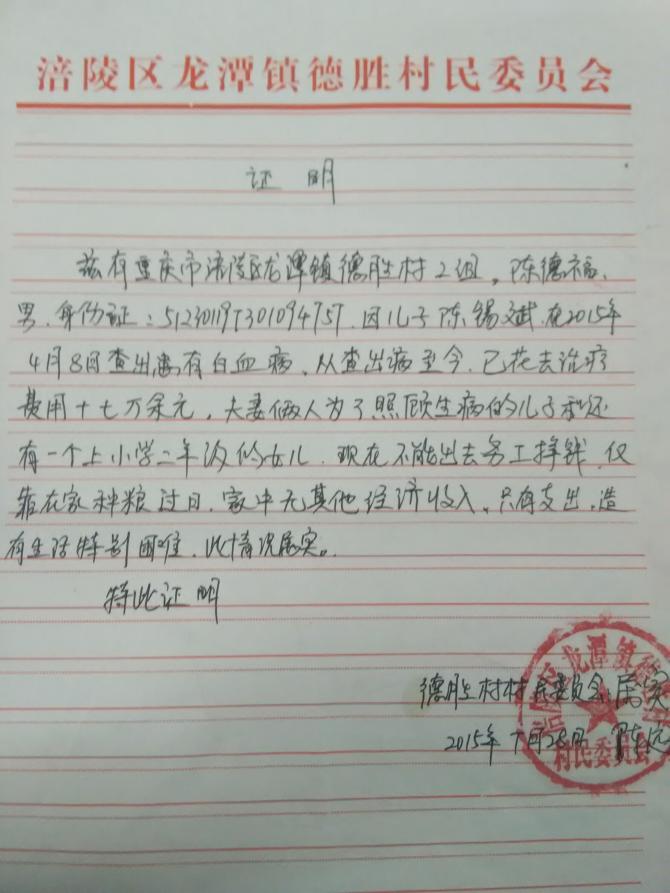 涪陵区龙潭镇德胜村民委员会
证 明
兹有重庆市涪陵区龙潭镇德胜村2组，陈德福、
男.身份证：512301197301094757.因儿子陈锡斌.在2015年
4月8日查出患有白血病，从查出病至今.已花去治疗
费用十七万余元，夫妻俩人为了照顾生病的儿子和还
有一个上小学二年级的女儿.现在不能出去务工挣钱.仅
靠在家种粮过日.家中无其他经济收入，只有支出，造
有生活特别困难.此情况属实。
特此证明
德胜村村民委员会 属实
2015年7月28日 陈远
龙潭镇德
村民委员会